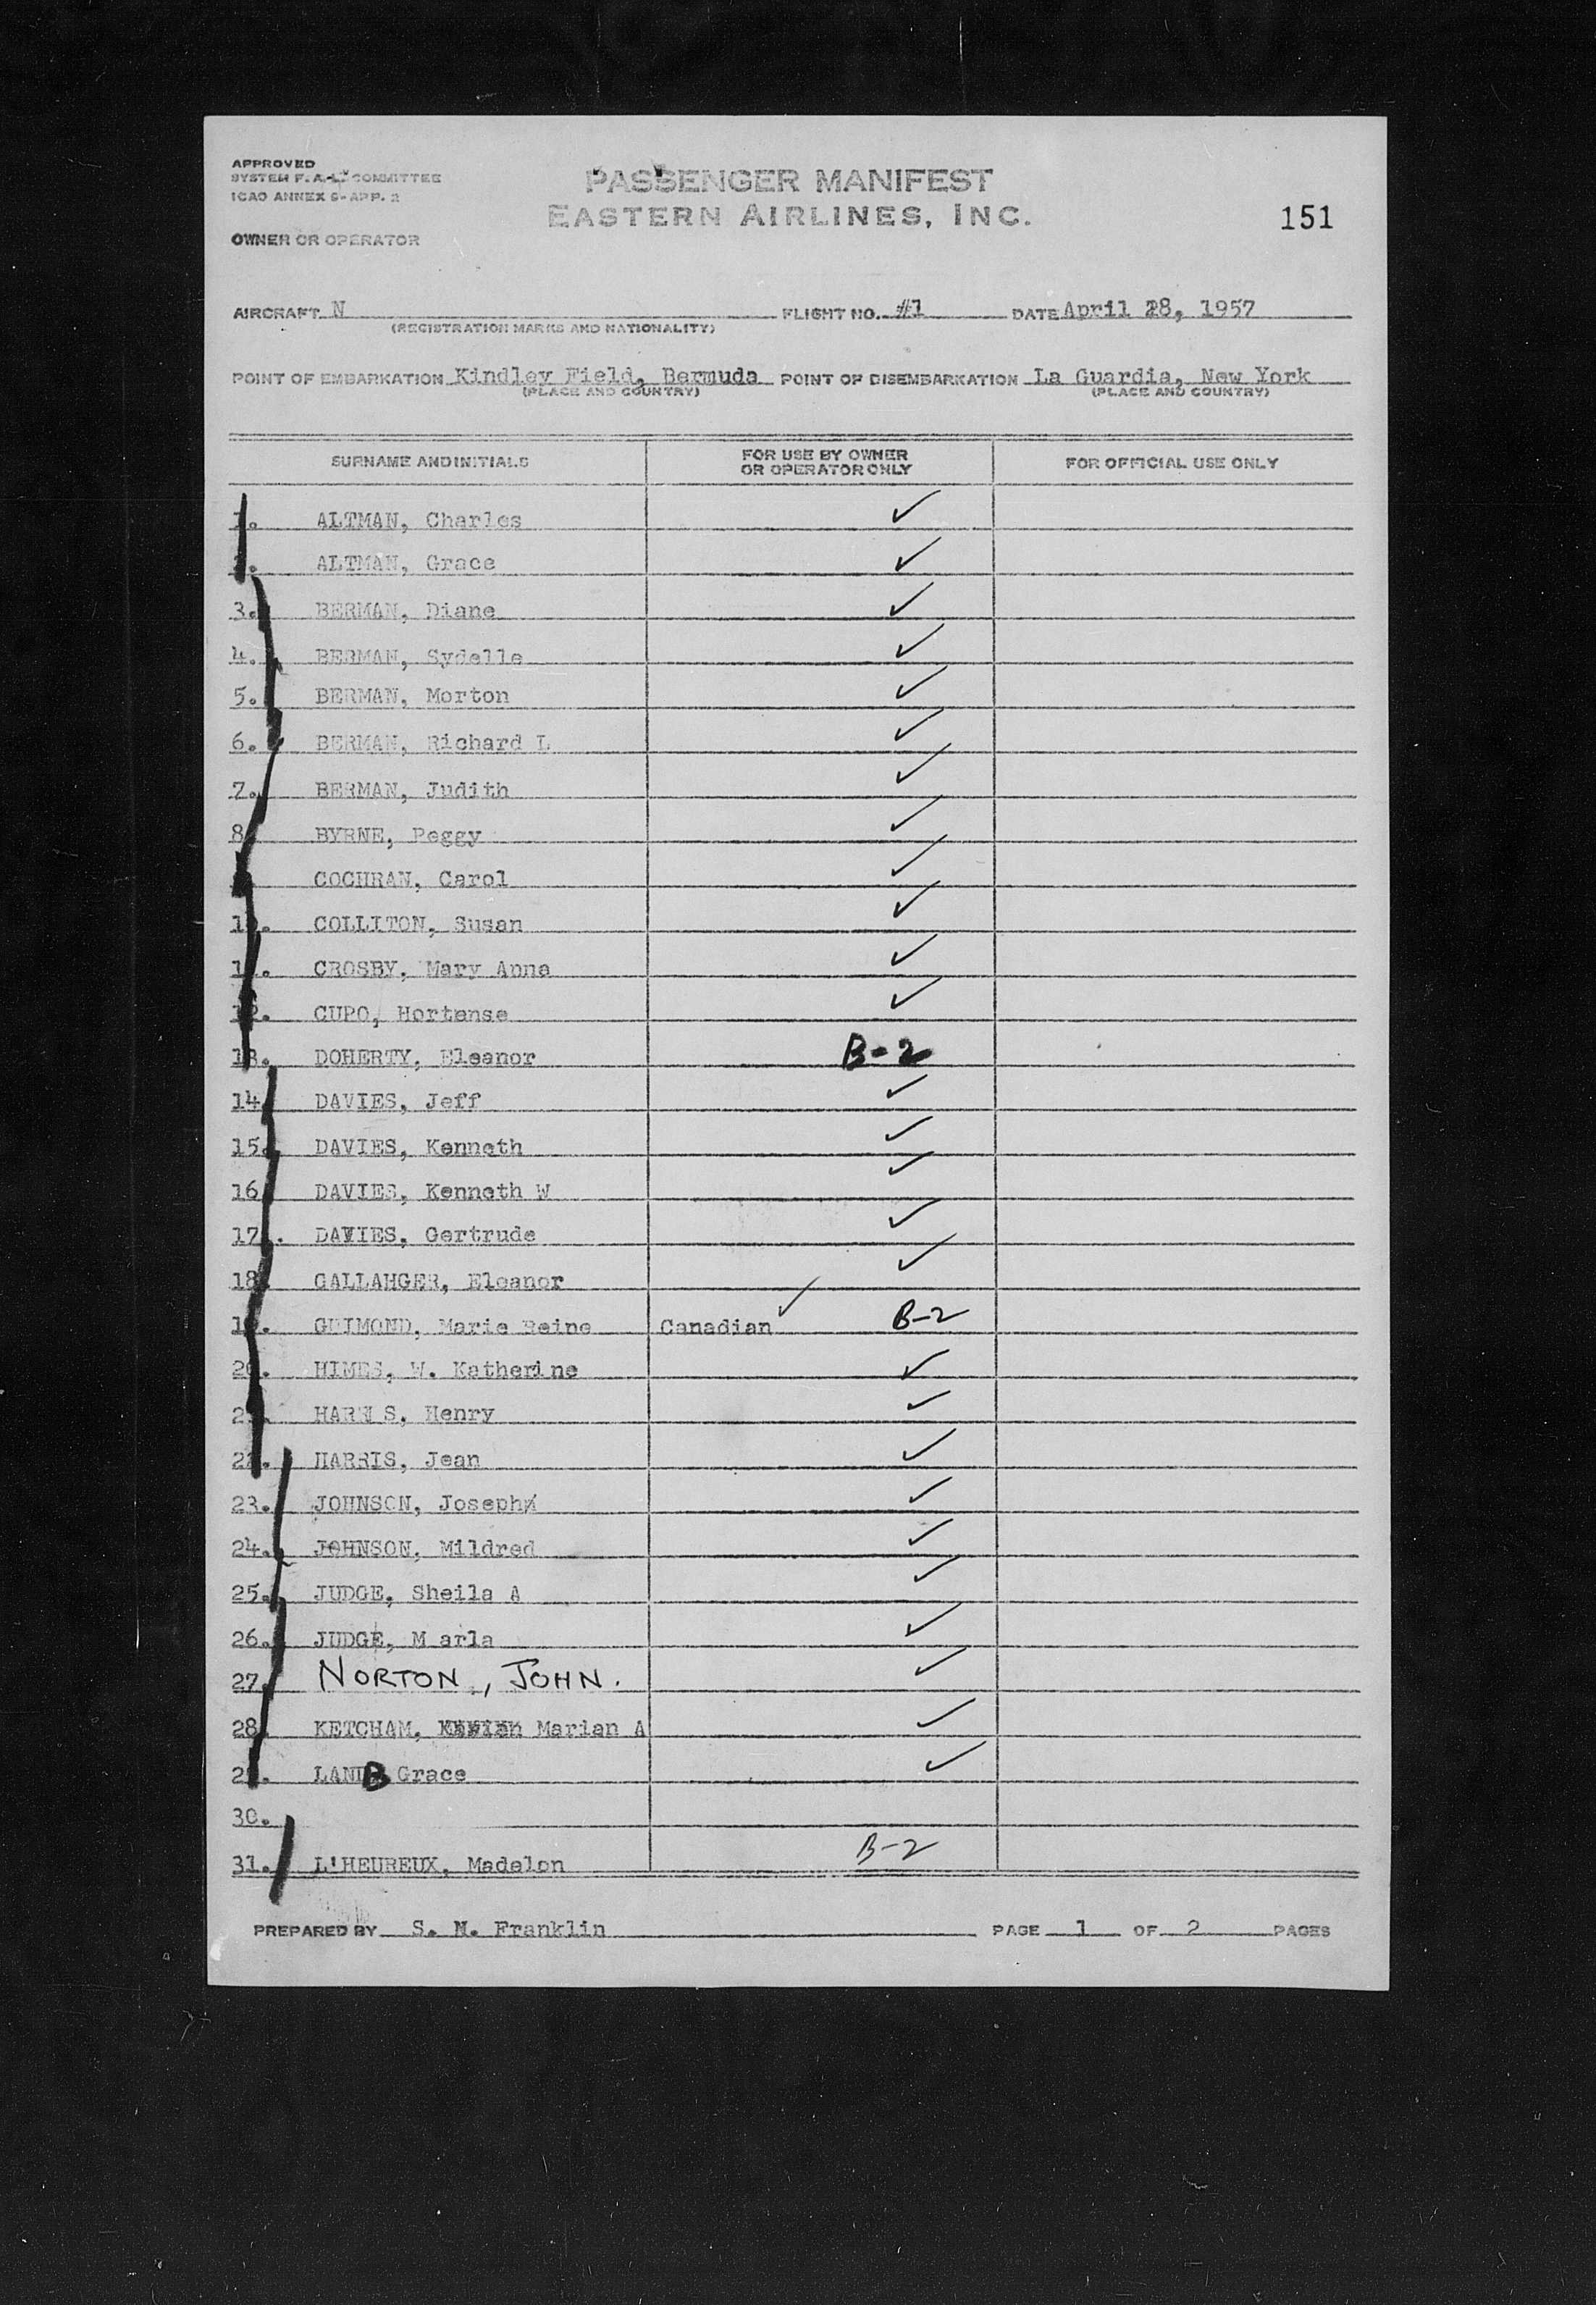 APPROVED
SYSTEM F. A. L. COMMITTEE
ICAO ANNEX 9-APP. 2
OWNER OR OPERATOR
PASSENGER MANIFEST
EASTERN AIRLINES, INC.
151
AIRCRAFT N FLIGHT NO. #1 DATE April 28, 1957
(REGISTRATION MARKS AND NATIONALITY)
POINT OF EMBARKATION Kindley Field, Bermuda POINT OF DISEMBARKATION La Guardia, New York
(PLACE AND COUNTRY) (PLACE AND COUNTRY)
SURNAME AND INITIALS FOR USE BY OWNER OR OPERATOR ONLY FOR OFFICIAL USE ONLY
1. ALTMAN, Charles ✓
2. ALTMAN, Grace ✓
3. BERMAN, Diane ✓
4. BERMAN, Sydelle ✓
5. BERMAN, Morton ✓
6. BERMAN, Richard L ✓
7. BERMAN, Judith ✓
8. BYRNE, Peggy ✓
9. COCHRAN, Carol ✓
10. COLLITON, Susan ✓
11. CROSBY, Mary Anne ✓
12. CUPO, Hortense ✓
13. DOHERTY, Eleanor B-2
14. DAVIES, Jeff ✓
15. DAVIES, Kenneth ✓
16. DAVIES, Kenneth W ✓
17. DAVIES, Gertrude ✓
18. GALLAHGER, Eleanor ✓
19. GUIMOND, Marie Reine Canadian ✓ B-2
20. HIMES, W. Katherine ✓
21. HARRIS, Henry ✓
22. HARRIS, Jean ✓
23. JOHNSON, Joseph ✓
24. JOHNSON, Mildred ✓
25. JUDGE, Sheila A ✓
26. JUDGE, M arla ✓
27. NORTON, JOHN. ✓
28. KETCHAM, Marian A ✓
29. LAND Grace ✓
30.
31. L'HEUREUX, Madelon B-2
PREPARED BY S. N. Franklin PAGE 1 OF 2 PAGES